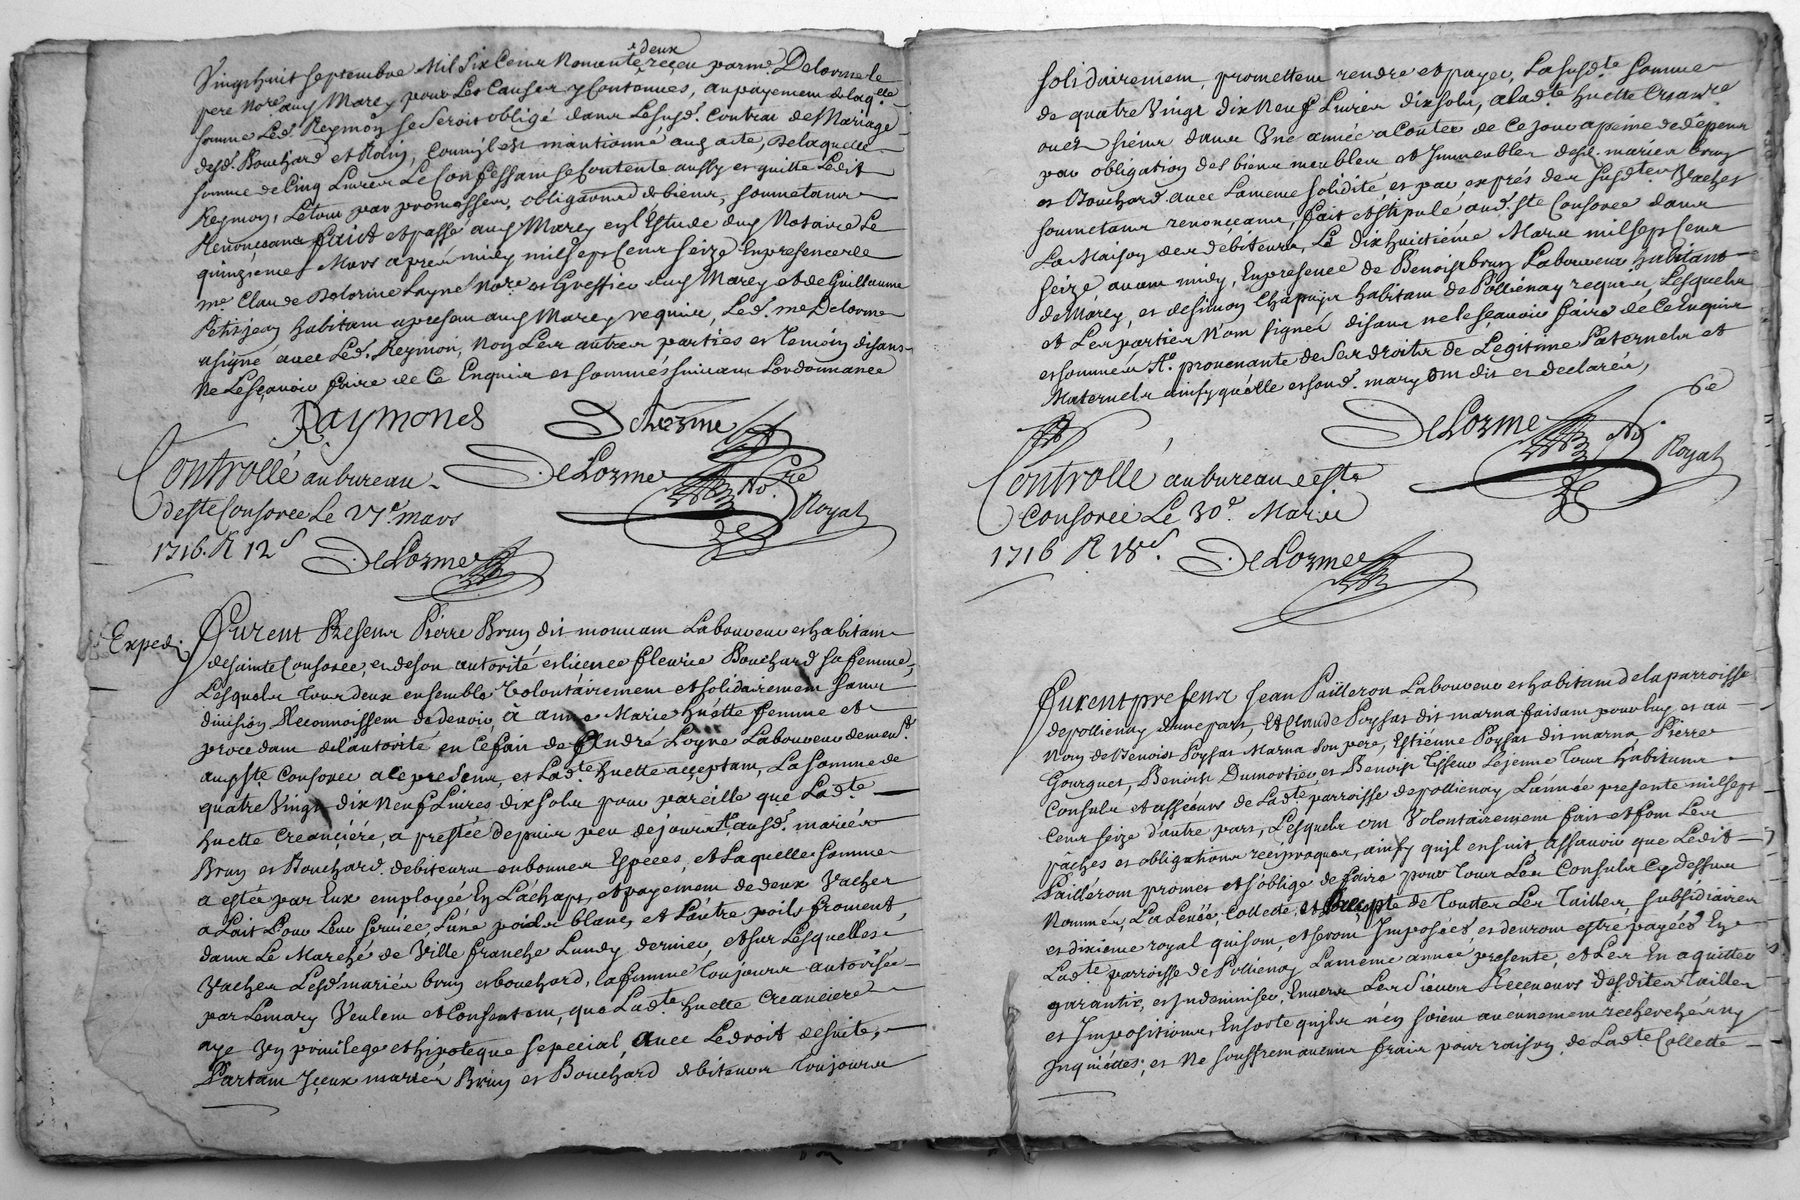 Vingt huit septembre Mil Six Cens Nonante deux reçeu par me. Delorme le
pere nore. aud Marcy pour Les Causes y Contenues, au payement de laqlle.
somme Led. Reymon se Seroit obligé dans Le susd. Contrat de Mariage
desd. Bouchard et Roiny, Comm'il est mantionné aud acte, De laquelle
somme de Cinq Livres Le Confessant se Contente aussy et quitte Ledit
Reymon, Letout par promesses, obligaons de biens, soumetans
Renonçeans fait et passé aud Marcy en l'Estude dud Notaire Le
quinzieme Mars aprés midy mil sept Cens seize En presence de
me Claude Delorme Layne Nore. et Greffier dud Marcy et de Guillaume
Petitjean habitant a present aud Marcy requis, Led. me Delorme
a signé avec Led. Reymon, Non Les autres parties et Temoin disans
Ne Le sçavoir faire de Ce Enquis et sommés suivant Lordonnance
Raymond DeLorme
Controllé au bureau DeLorme No.re Royal
de ste Consorce Le 27e. mars
1716. R 12s DeLorme
Exped. Furent Presens Pierre Brun dit mouuant Laboureur et habitant
de sainte Consorce, et de son autorité et licence fleurie Bouchard sa femme,
Lesquels Tous deux ensemble Volontairement et solidairement sans
division Reconnoissent de devoir à anne Marie huette femme et
procedant de l'autorité en Ce fait de André Loyne Laboureur demeurt.
aud ste Consorce a Ce present, et Ladte huette acceptant, La somme de
quatre Vingt dix Neuf Livres dix sols pour pareille que Ladte
huette Creançiére, a prestée depuis peu de jours ausd. mariés
Brun et Bouchard debiteurs en bonnes Especes, et Laquelle somme
a estée par Eux employée En L'achapt, et payement de deux Vaches
a Lait Pour Leur service, L'une poil blanc, et L'autre poils froment,
dans Le Marché de Ville franche Lundy dernier, et sur Lesquelles
Vaches Lesd mariés brun et bouchard, la femme Toujours autorisée
par Le mary Veulent et Consentent, que Ladte huette Creanciere
aye Un privilege et hipoteque special, avec Le droit de suite,
Partant Iceux mariés Brun et Bouchard debiteurs Toujours
solidairement, promettent rendre et payer, La susdte somme
de quatre Vingt dix Neuf Livres dix sols, a ladte huette Creançre
ou es siens dans Une année a Conter de Ce jour a peine de dépens
par obligation des biens meubles et Immeubles desd. mariés brun
et Bouchard avec La meme solidité et par exprés des susdtes Vaches
soumetans renonçeans, fait et stipulé aud. ste Consorce dans
La Maison des debiteurs, Le dixhuitiéme Mars mil sept Cens
seize avant midy, En presence de Benoist brun Laboureur habitant
de Marcy, et de simon Chapuys habitant de Pollienay requis, Lesquels
et Les parties N'ont signé disant ne le sçavoir faire de Ce Enquis
et sommés A. provenante de ses droits de Legitime Paternels et
Maternels ainsy qu'elle et sond. mary ont dit et declaré,
DeLorme No.re Royal
Controllé au bureau de ste
Consorce Le 30e. Mars
1716 R 18s. DeLorme
Furent presens Jean Pailleron Laboureur et habitant de la parroisse
de pollienay d'une part, Et Claude Poyssat dit marna faisant pour luy et au
Nom de Benoist Poyssat Marna son pere, Estiénne Poyssat dit marna Pierre
Gourguet, Benoist Dumortier et Benoist Tisseur Lejeune Tous habitans
Consuls et asséeurs de Ladte parroisse de pollienay L'année presente mil sept
Cens seize d'autre part, Lesquels ont Volontairement fait et font Les
paches et obligations reciproques, ainsy qu'il ensuit assavoir que Ledit
Pailleron promet et s'oblige de faire pour Tous Les Consuls Cy dessus
Nommés, La Levée, Collecte, et de Toutes Les Tailles, subsidiaires
et dixiéme royal qui sont, et seront Imposées et devront estre payées En
Ladte parroisse de Pollienay La meme année presente, et Les En aquitter
garantir, et Indemniser, Envers Les Sieurs Receveurs desdites Tailles
et Impositions, En sorte qu'ils n'en soient aucunement recherchés ny
Inquiétés, et Ne souffrent aucuns frais pour raison de Ladte Collecte